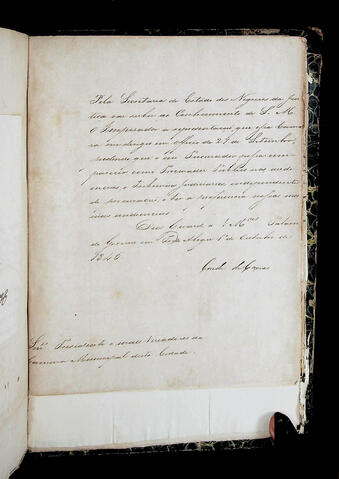 Pela Secretaria de Estado dos Negocios da Jus
tica vai subir ao Conhecimento de S. M.
O Imperador a representação que essa Cama
ra me dirigio em officio de 29 de Setembro,
pedindo que o seu Procurador possa com
parecer como Procurador Publico nas audi
encias, e Tribunaes Judiciarios, independente
de procuração, e ter a preferencia nessas
mesmas audiencias.
Deos Guarde a V. Mces Palacio
do Governo em Porto Alegre 1º de Outubro de
1845
Conde de Caxias
Snrs. Presidente e mais Vereadores da
Camara Municipal desta Cidade.